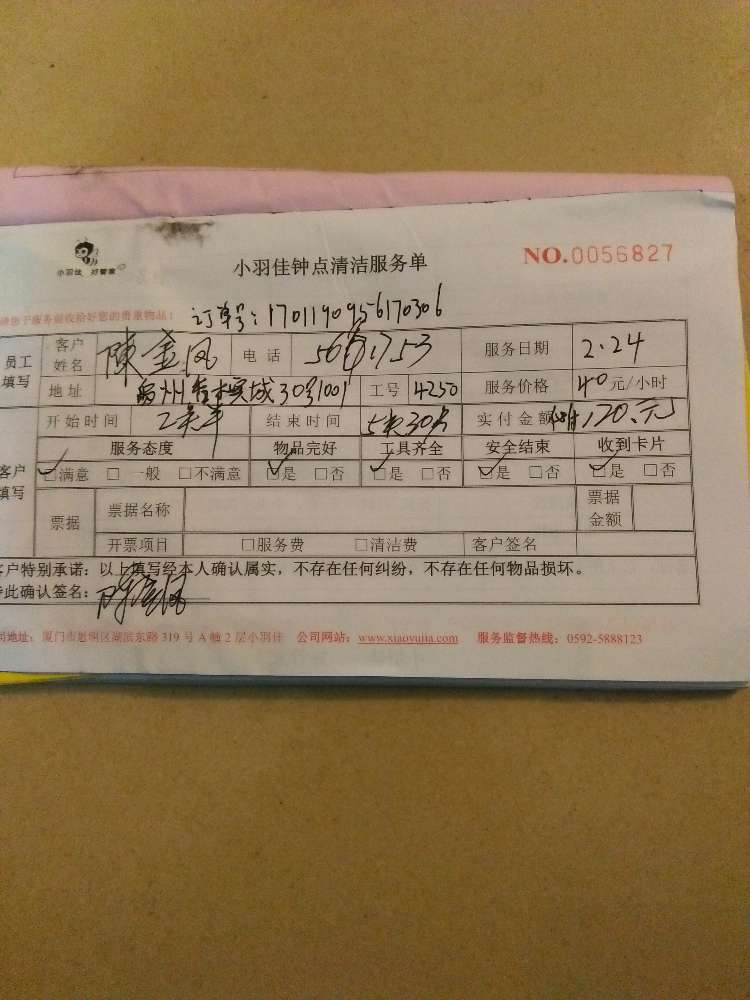 小羽佳 好管家
小羽佳钟点清洁服务单
NO.0056827
请您于服务前收拾好您的贵重物品!
订单号:1701190956170306
员工填写 客户姓名 陳金凤 电话 服务日期 2.24
地址 30号1001 工号 4250 服务价格 40元/小时
开始时间 2点半 结束时间 5点30分 实付金额 120.元
服务态度 物品完好 工具齐全 安全结束 收到卡片
客户填写 ☑满意 □一般 □不满意 ☑是 □否 ☑是 □否 ☑是 □否 ☑是 □否
票据 票据名称 票据金额
开票项目 □服务费 □清洁费 客户签名
客户特别承诺:以上填写经本人确认属实,不存在任何纠纷,不存在任何物品损坏。
特此确认签名:陈金凤
司地址:厦门市思明区湖滨东路 319 号 A 幢 2 层小羽佳 公司网站:www.xiaoyujia.com 服务监督热线:0592-5888123